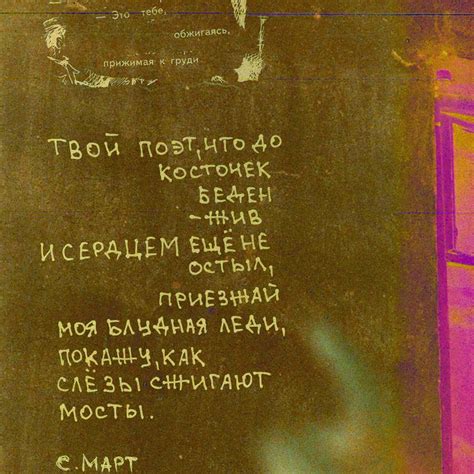 — Это тебе,
обжигаясь,
прижимая к груди
ТВОЙ ПОЭТ, ЧТО ДО
КОСТОЧЕК
БЕДЕН
– ЖИВ
И СЕРДЦЕМ ЕЩЁ НЕ
ОСТЫЛ,
ПРИЕЗЖАЙ
МОЯ БЛУДНАЯ ЛЕДИ,
ПОКАЖУ, КАК
СЛЁЗЫ СЖИГАЮТ
МОСТЫ.
С. МАРТ